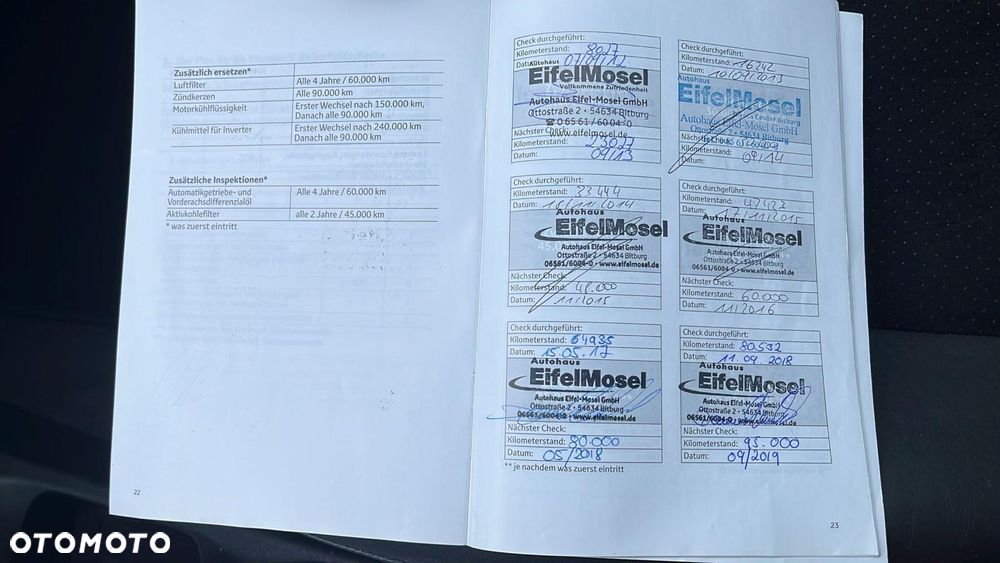 Zusätzlich ersetzen*
Luftfilter Alle 4 Jahre / 60.000 km
Zündkerzen Alle 90.000 km
Motorkühlflüssigkeit Erster Wechsel nach 150.000 km,
Danach alle 90.000 km
Kühlmittel für Inverter Erster Wechsel nach 240.000 km
Danach alle 90.000 km
Zusätzliche Inspektionen*
Automatikgetriebe- und
Vorderachsdifferenzialöl
Alle 4 Jahre / 60.000 km
Aktivkohlefilter alle 2 Jahre / 45.000 km
* was zuerst eintritt
22
Check durchgeführt:
Kilometerstand: 8027
Datum: 07/09/12
Autohaus
EifelMosel
Vollkommene Zufriedenheit
Autohaus Eifel-Mosel GmbH
Ottostraße 2 • 54634 Bitburg
☎ 0 65 61 / 60 04-0
www.eifelmosel.de
Nächster Check:
Kilometerstand: 23027
Datum: 09/13
Check durchgeführt:
Kilometerstand: 16242
Datum: 10/09/2013
Autohaus
EifelMosel
Center Bitburg
Autohaus Eifel-Mosel GmbH
Ottostraße 2 • 54634 Bitburg
Kilometerstand:
Datum: 09/14
Check durchgeführt:
Kilometerstand: 33444
Datum: 15/11/2014
Autohaus
EifelMosel
Autohaus Eifel-Mosel GmbH
Ottostraße 2 • 54634 Bitburg
06561/6004-0 • www.eifelmosel.de
Nächster Check:
Kilometerstand: 48.000
Datum: 11/2015
Check durchgeführt:
Kilometerstand: 47427
Datum: 17/11/2015
Autohaus
EifelMosel
Autohaus Eifel-Mosel GmbH
Ottostraße 2 • 54634 Bitburg
06561/6004-0 • www.eifelmosel.de
Nächster Check:
Kilometerstand: 60.000
Datum: 11/2016
Check durchgeführt:
Kilometerstand: 64935
Datum: 15.05.17
Autohaus
EifelMosel
Autohaus Eifel-Mosel GmbH
Ottostraße 2 • 54634 Bitburg
06561/6004-0 • www.eifelmosel.de
Nächster Check:
Kilometerstand: 80.000
Datum: 05/2018
Check durchgeführt:
Kilometerstand: 80532
Datum: 11.04.2018
Autohaus
EifelMosel
Autohaus Eifel-Mosel GmbH
Ottostraße 2 • 54634 Bitburg
06561/6004-0 www.eifelmosel.de
Nächster Check:
Kilometerstand: 95.000
Datum: 04/2019
** je nachdem was zuerst eintritt
23
OTOMOTO